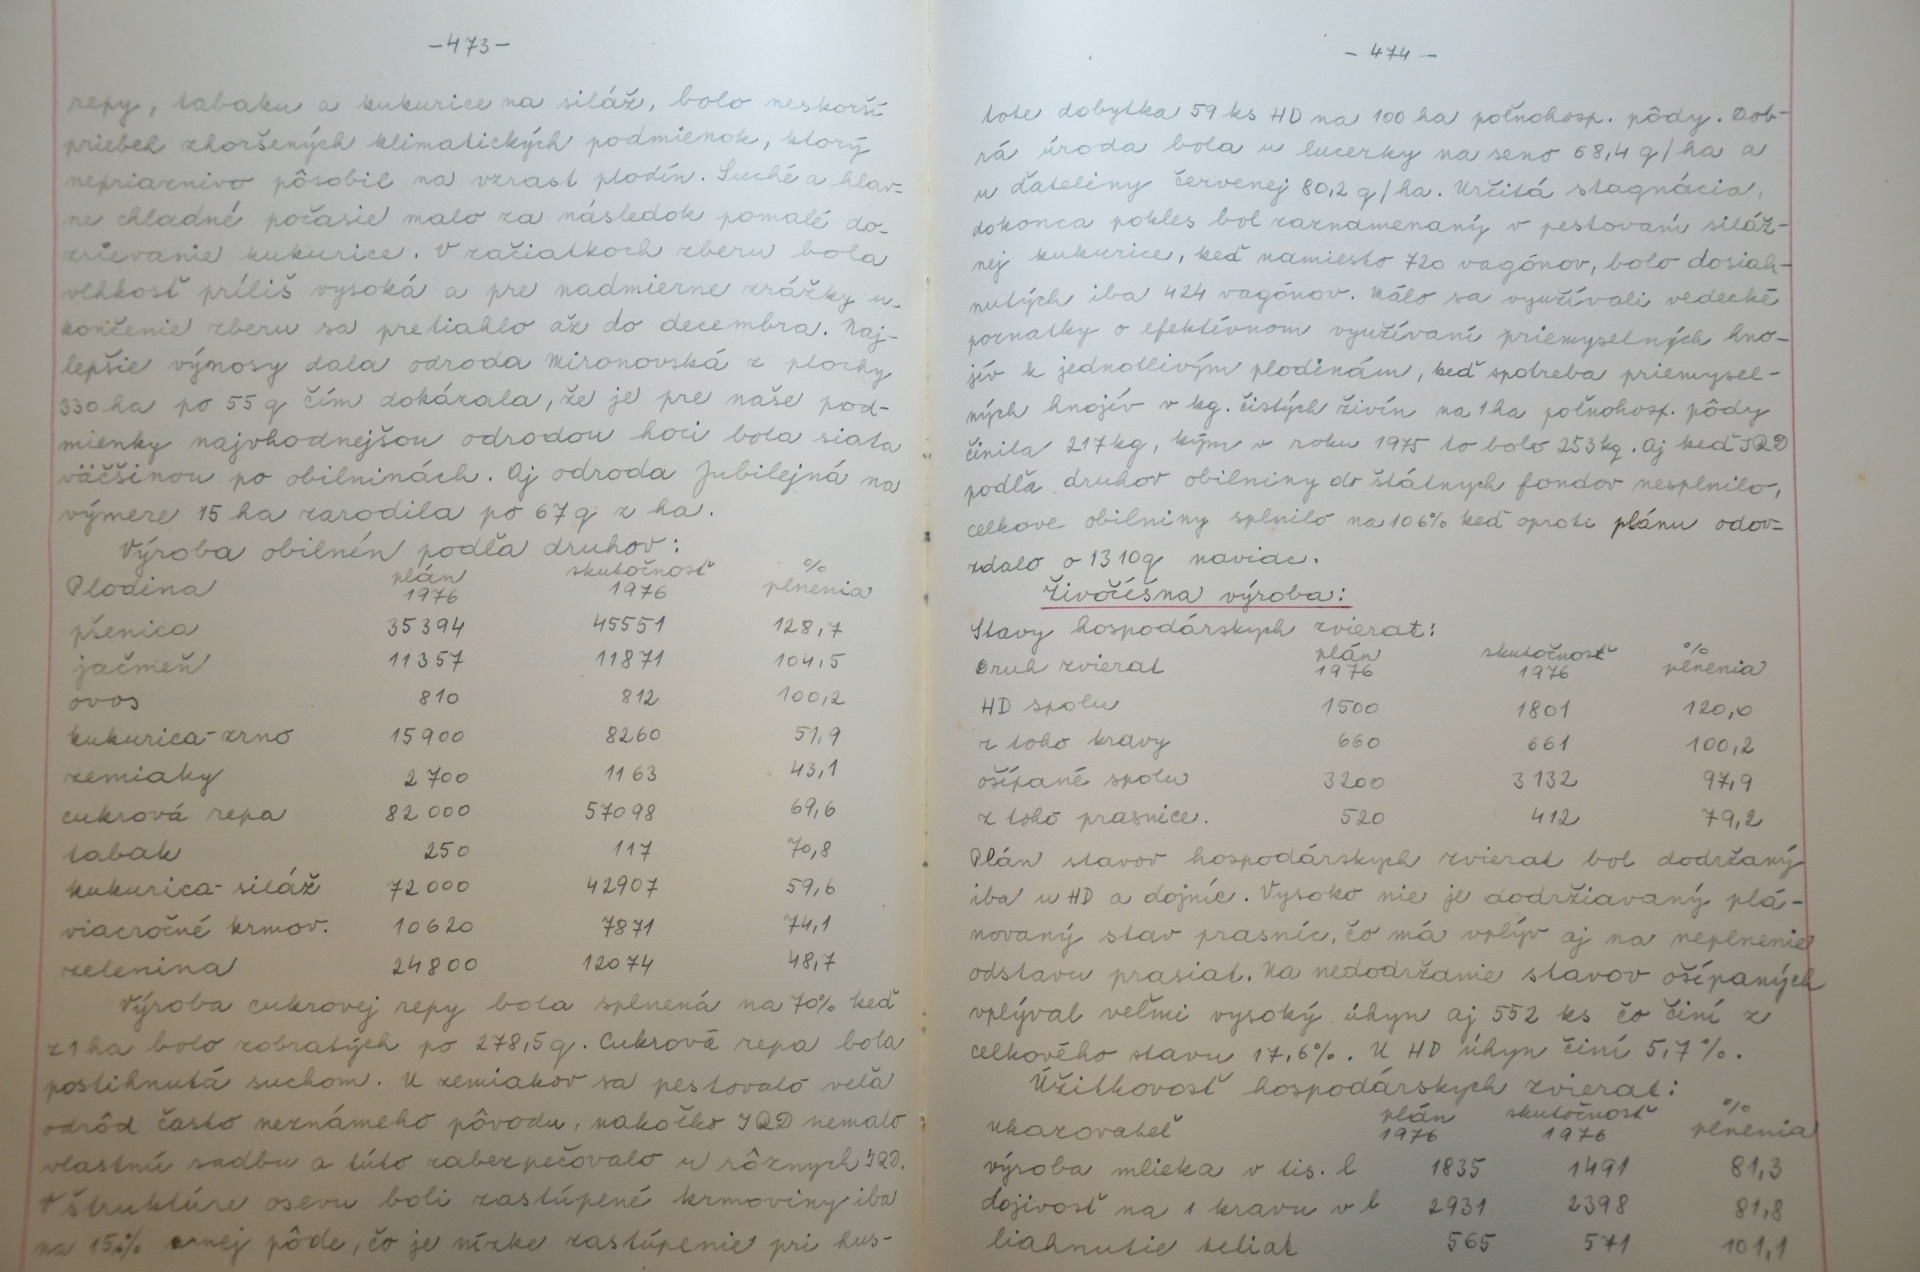 -473-
repy, tabaku a kukurice na siláž, bolo neskorší
priebeh zhoršených klimatických podmienok, ktorý
nepriaznivo pôsobil na vzrast plodín. Suché a hlav-
ne chladné počasie malo za následok pomalé do-
zrievanie kukurice. V začiatkoch zberu bola
vlhkosť príliš vysoká a pre nadmierne zrážky u-
končenie zberu sa pretiahlo až do decembra. Naj-
lepšie výnosy dala odroda Mironovská z plochy
330 ha po 55 q čím dokázala, že je pre naše pod-
mienky najvhodnejšou odrodou hoci bola siata
väčšinou po obilninách. Aj odroda Jubilejná na
výmere 15 ha zarodila po 67 q z ha.
Výroba obilnín podľa druhov:
Plodina plán 1976 skutočnosť 1976 % plnenia
pšenica 35394 45551 128,7
jačmeň 11357 11871 104,5
ovos 810 812 100,2
kukurica-zrno 15900 8260 51,9
zemiaky 2700 1163 43,1
cukrová repa 82000 57098 69,6
tabak 250 117 70,8
kukurica-siláž 72000 42907 59,6
viacročné krmov. 10620 7871 74,1
zelenina 24800 12074 48,7
Výroba cukrovej repy bola splnená na 70% keď
z 1 ha bolo zobratých po 278,5 q. Cukrová repa bola
postihnutá suchom. U zemiakov sa pestovalo veľa
odrôd často neznámeho pôvodu, nakoľko JRD nemalo
vlastnú sadbu a túto zabezpečovalo u rôznych JRD.
V štruktúre osevu boli zastúpené krmoviny iba
na 15% ornej pôde, čo je nízke zastúpenie pri hus-
- 474 -
tote dobytka 59 ks HD na 100 ha poľnohosp. pôdy. Dob-
rá úroda bola u lucerky na seno 68,4 q/ha a
u ďateliny červenej 80,2 q/ha. Určitá stagnácia,
dokonca pokles bol zaznamenaný v pestovaní siláž-
nej kukurice, keď namiesto 720 vagónov, bolo dosiah-
nutých iba 424 vagónov. Málo sa využívali vedecké
poznatky o efektívnom využívaní priemyselných hno-
jív k jednotlivým plodinám, keď spotreba priemysel-
ných hnojív v kg. čistých živín na 1 ha poľnohosp. pôdy
činila 217 kg, kým v roku 1975 to bolo 253 kg. Aj keď JRD
podľa druhov obilniny do štátnych fondov nesplnilo,
celkove obilniny splnilo na 106% keď oproti plánu odov-
zdalo o 1310q naviac.
Živočíšna výroba:
Stavy hospodárskych zvierat:
Druh zvierat plán 1976 skutočnosť 1976 % plnenia
HD spolu 1500 1801 120,0
z toho kravy 660 661 100,2
ošípané spolu 3200 3132 97,9
z toho prasnice. 520 412 79,2
Plán stavov hospodárskych zvierat bol dodržaný
iba u HD a dojníc. Vysoko nie je dodržiavaný plá-
novaný stav prasníc, čo má vplyv aj na neplnenie
odstavu prasiat. Na nedodržanie stavov ošípaných
vplýval veľmi vysoký úhyn aj 552 ks čo činí z
celkového stavu 17,6%. U HD úhyn činí 5,7%.
Úžitkovosť hospodárskych zvierat:
Ukazovateľ plán 1976 skutočnosť 1976 % plnenia
výroba mlieka v tis. l 1835 1491 81,3
dojivosť na 1 kravu v l 2931 2398 81,8
liahnutie teliat 565 571 101,1